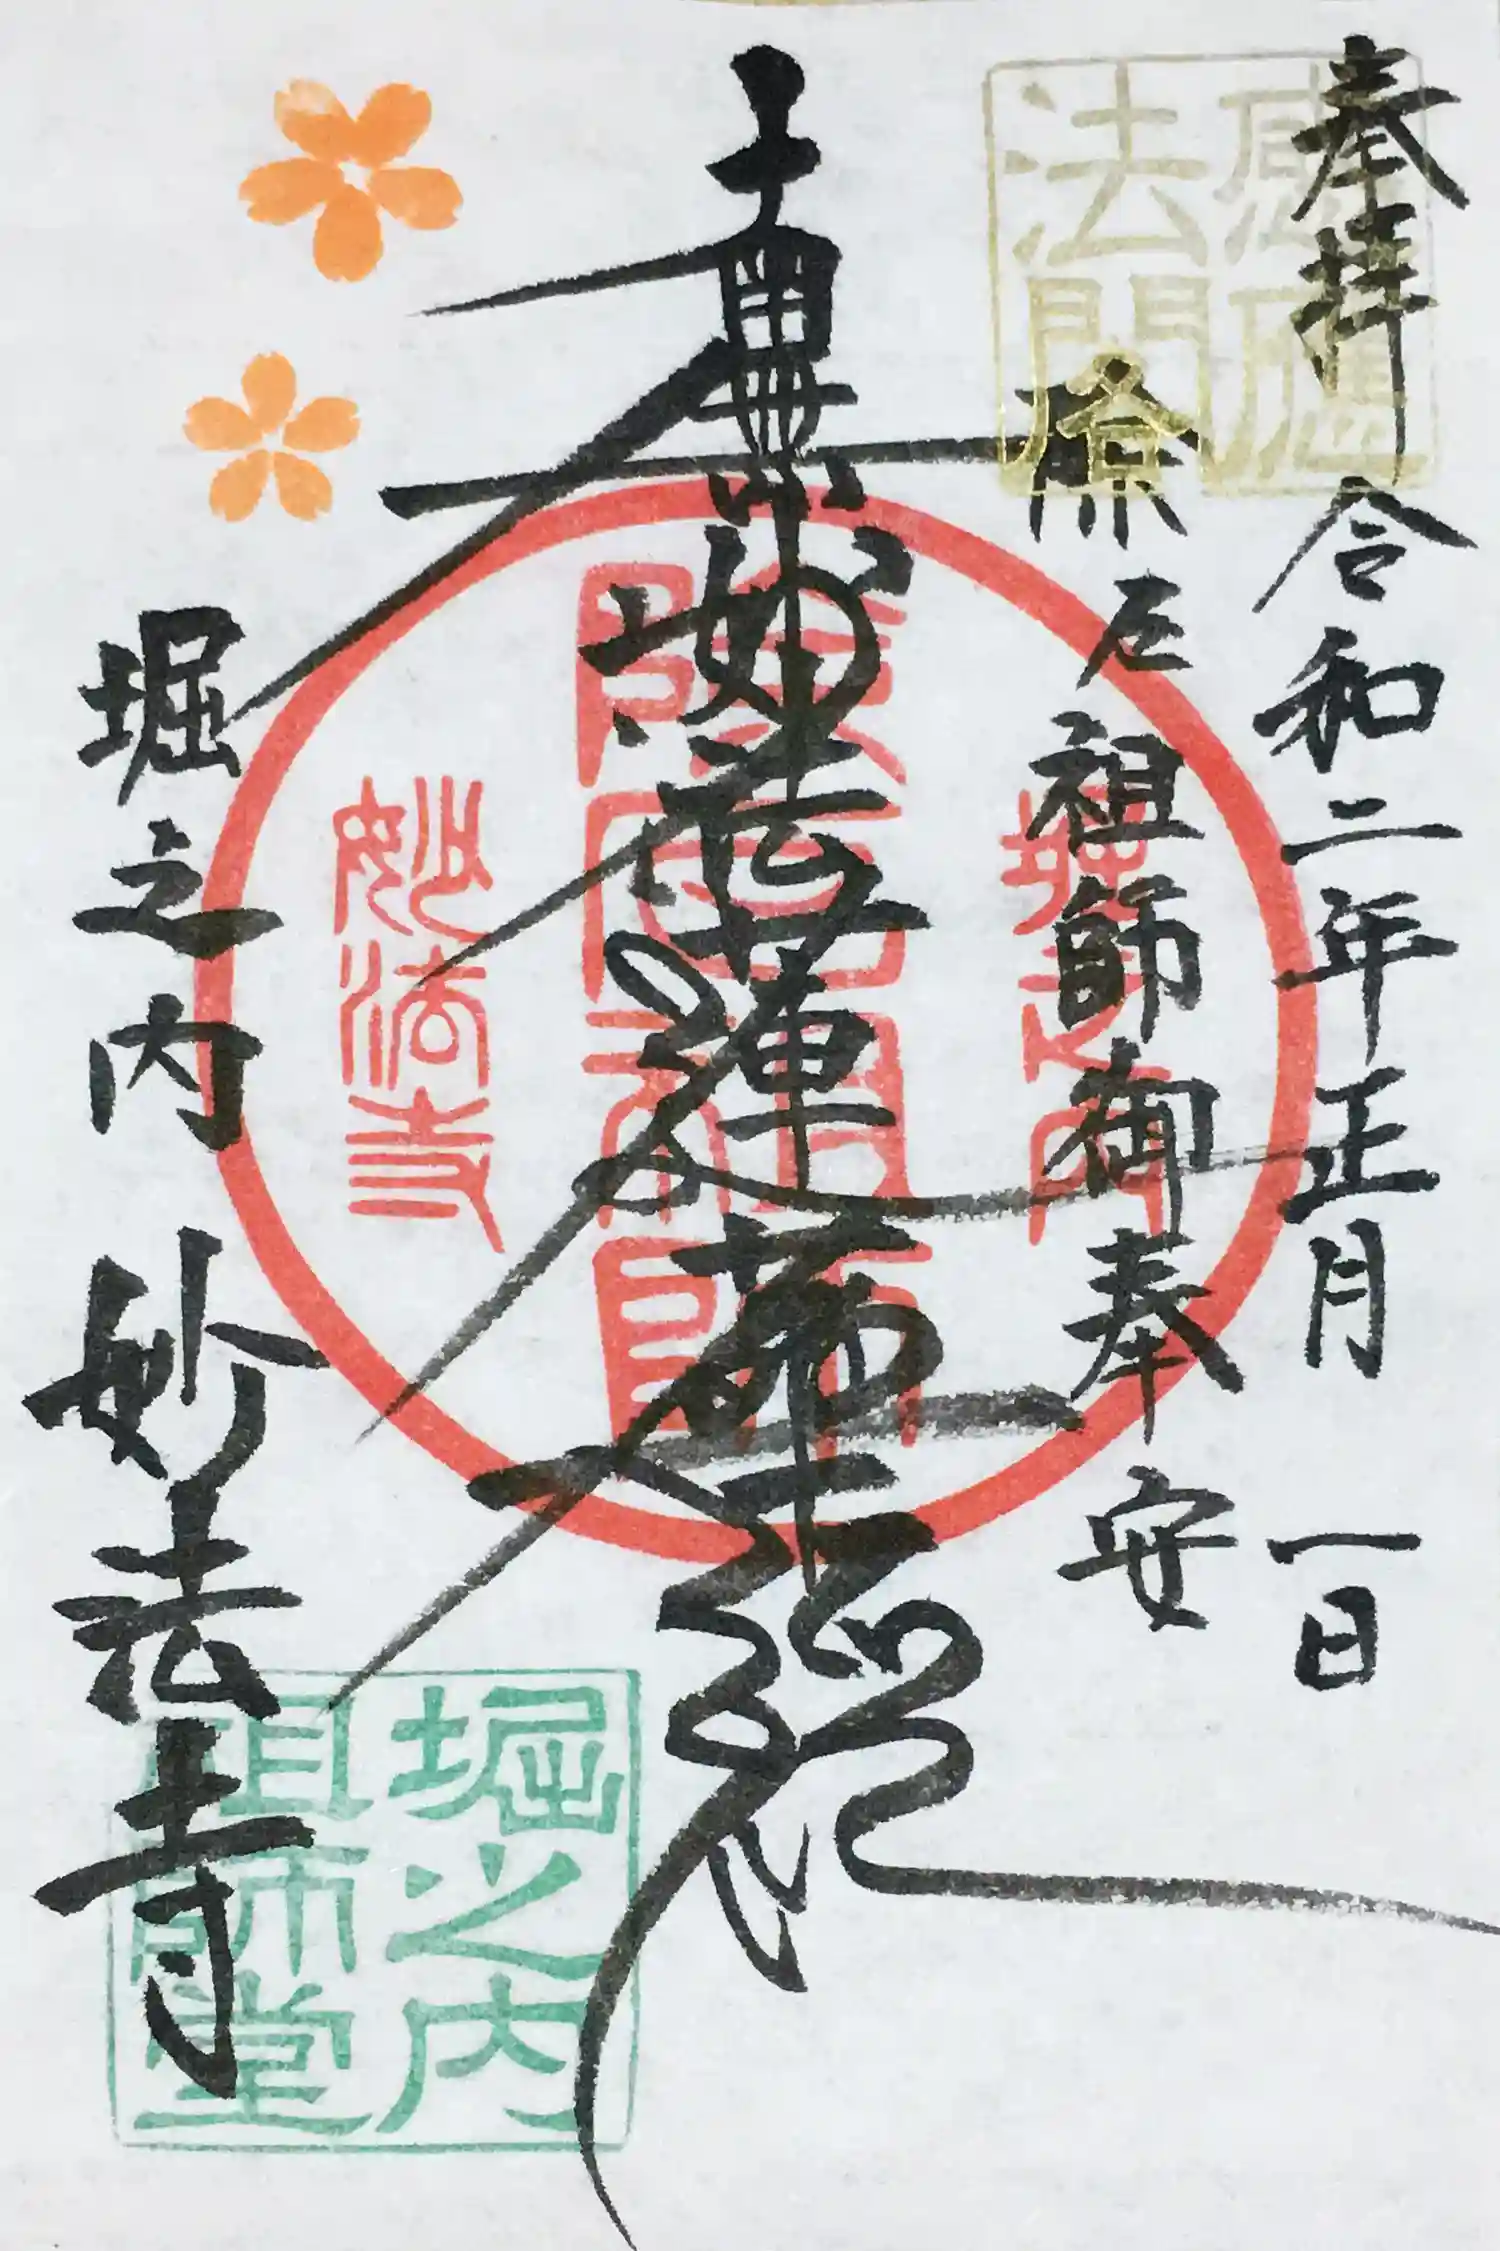 奉拝 令和二年正月一日
除厄祖師御奉安
南無妙法蓮華經
堀之内 妙法寺
感應
法閣
堀之内
除厄祖師
妙法寺
堀之内
祖師堂